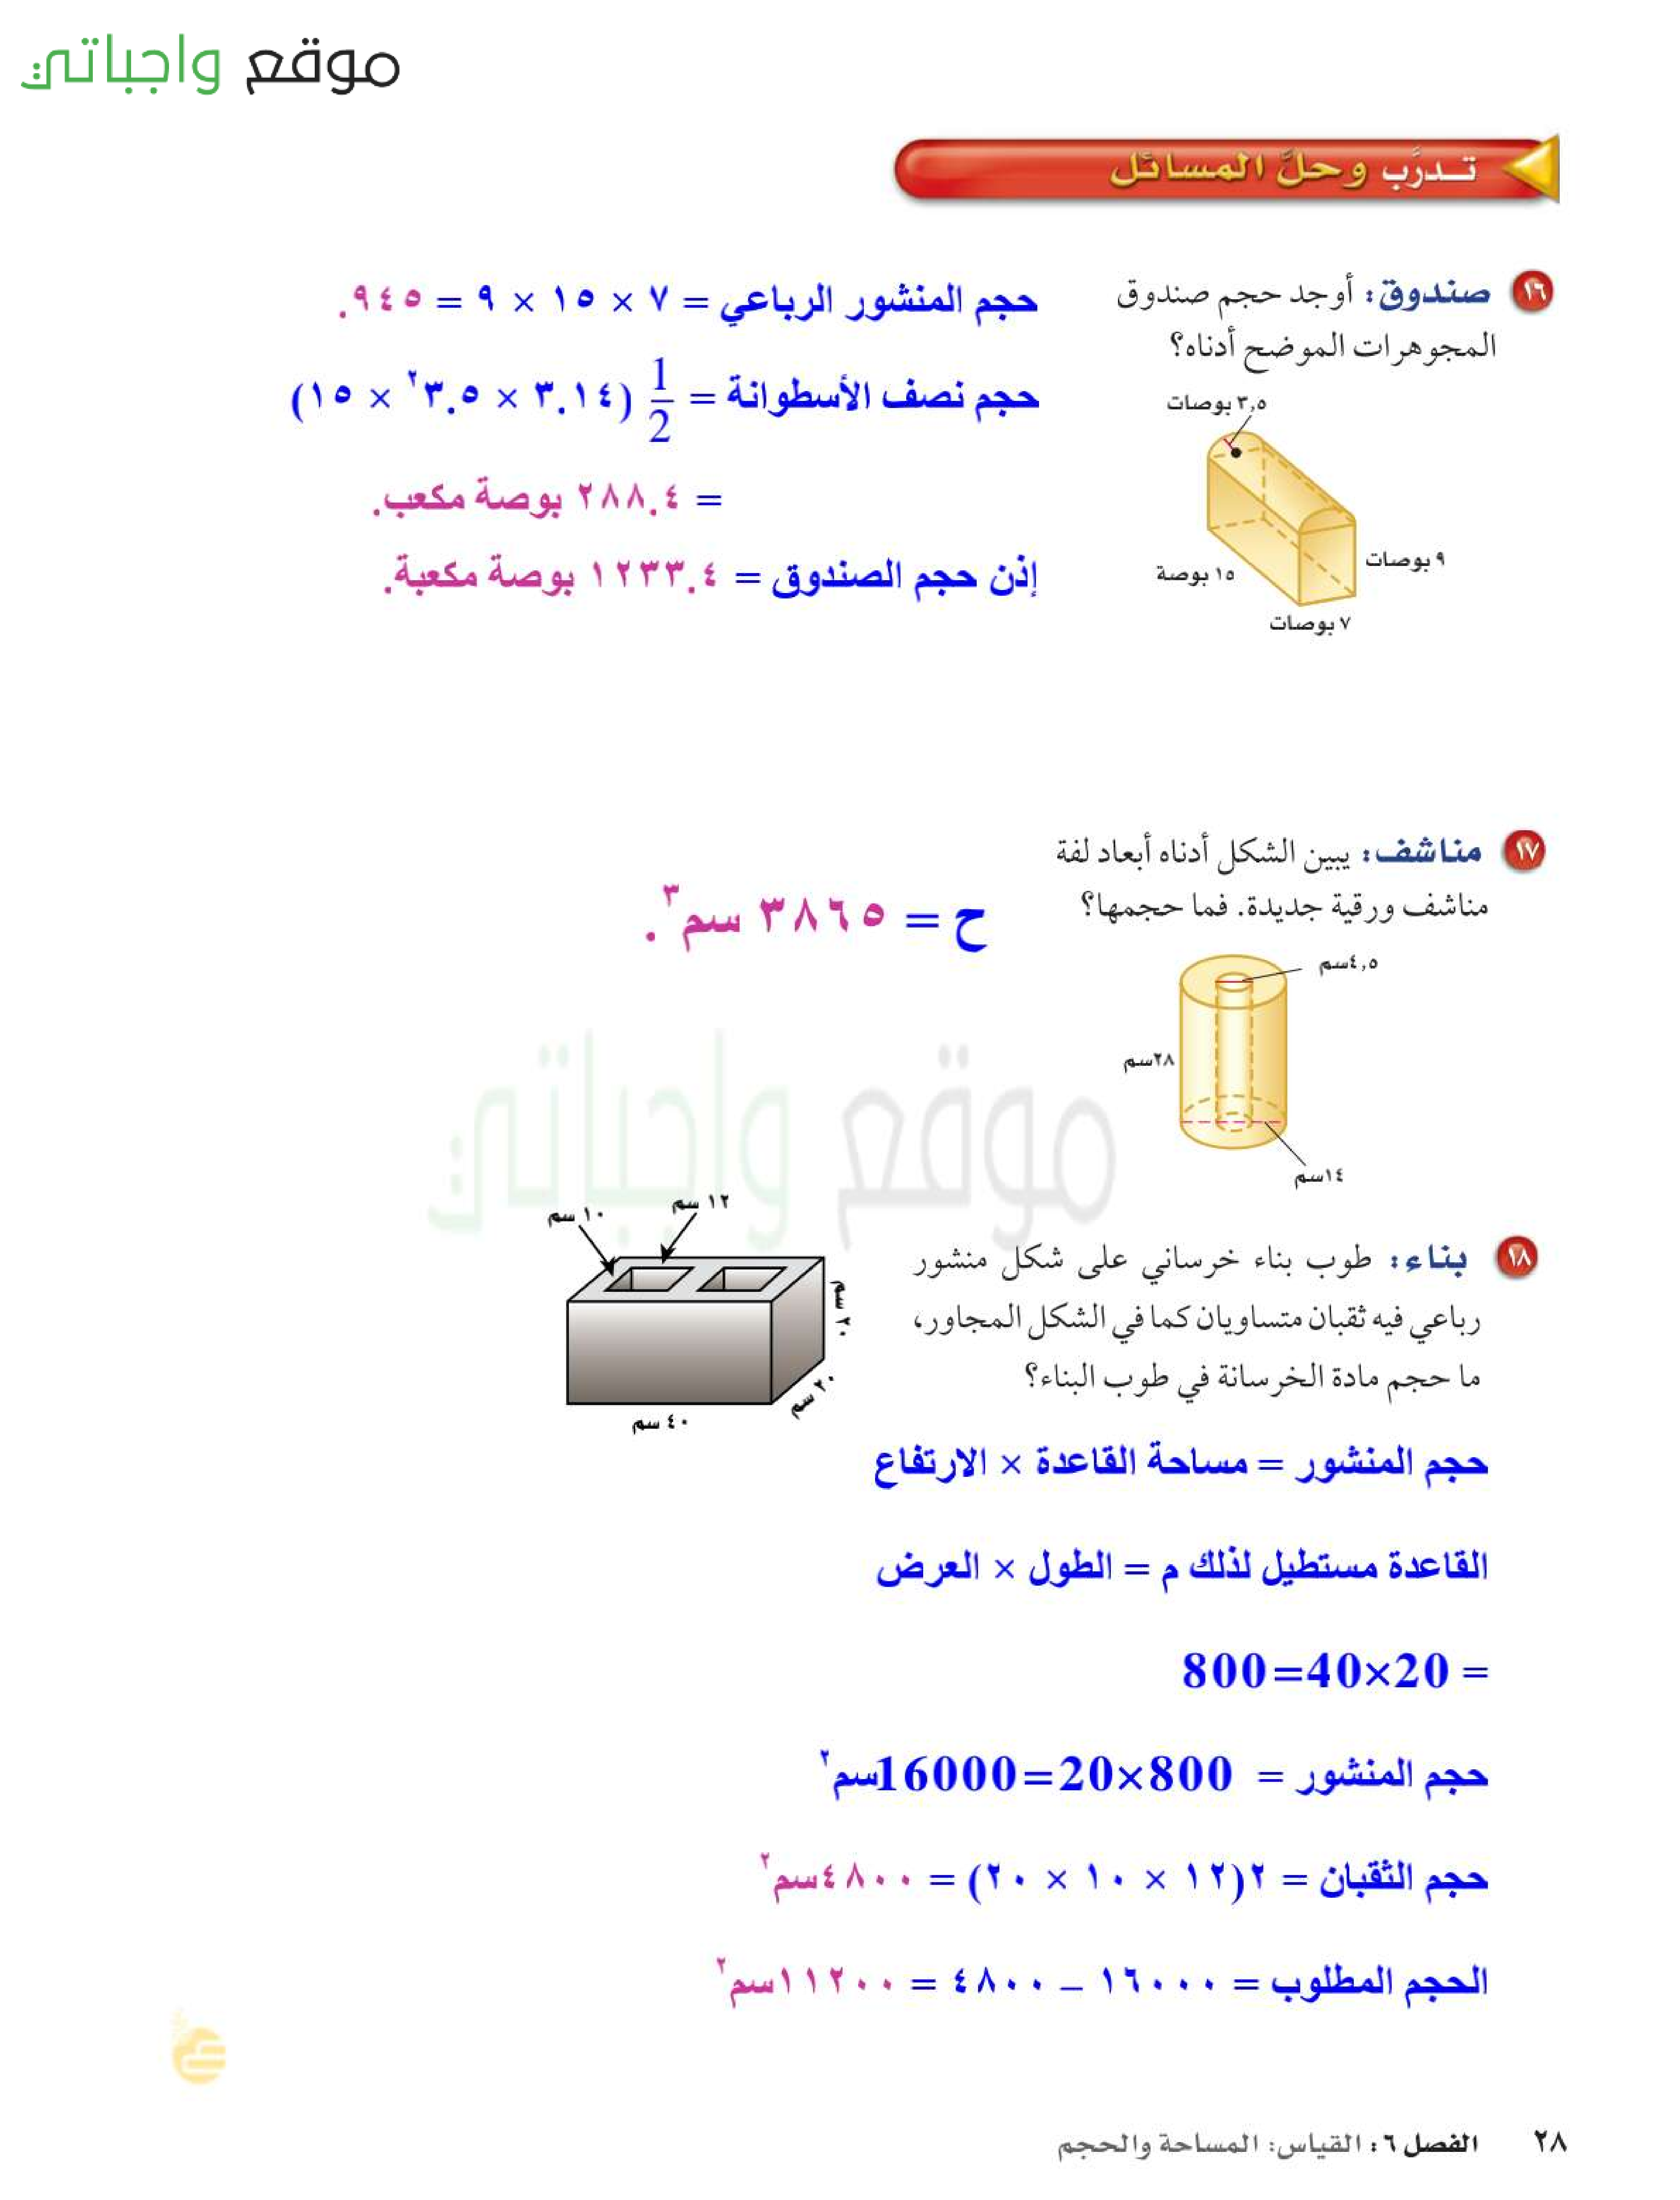 موقع واجباتي
تدرَّب وحلَّ المسائل
١٦ صندوق: أوجد حجم صندوق
المجوهرات الموضح أدناه؟
٣,٥ بوصات
٩ بوصات
١٥ بوصة
٧ بوصات
حجم المنشور الرباعي = ٧ × ١٥ × ٩ = ٩٤٥.
حجم نصف الأسطوانة = 1/2 (٣.١٤ × ٣.٥² × ١٥)
= ٢٨٨.٤ بوصة مكعب.
إذن حجم الصندوق = ١٢٣٣.٤ بوصة مكعبة.
١٧ مناشف: يبين الشكل أدناه أبعاد لفة
مناشف ورقية جديدة. فما حجمها؟
٤,٥سم
٢٨سم
١٤سم
ح = ٣٨٦٥ سم³.
موقع واجباتي
١٨ بناء: طوب بناء خرساني على شكل منشور
رباعي فيه ثقبان متساويان كما في الشكل المجاور،
ما حجم مادة الخرسانة في طوب البناء؟
١٢ سم
١٠ سم
٢٠ سم
٢٠ سم
٤٠ سم
حجم المنشور = مساحة القاعدة × الارتفاع
القاعدة مستطيل لذلك م = الطول × العرض
= 20×40=800
حجم المنشور = 800×20=16000سم²
حجم الثقبان = ٢(١٢ × ١٠ × ٢٠) = ٤٨٠٠سم²
الحجم المطلوب = ١٦٠٠٠ – ٤٨٠٠ = ١١٢٠٠سم²
٢٨ الفصل ٦: القياس: المساحة والحجم